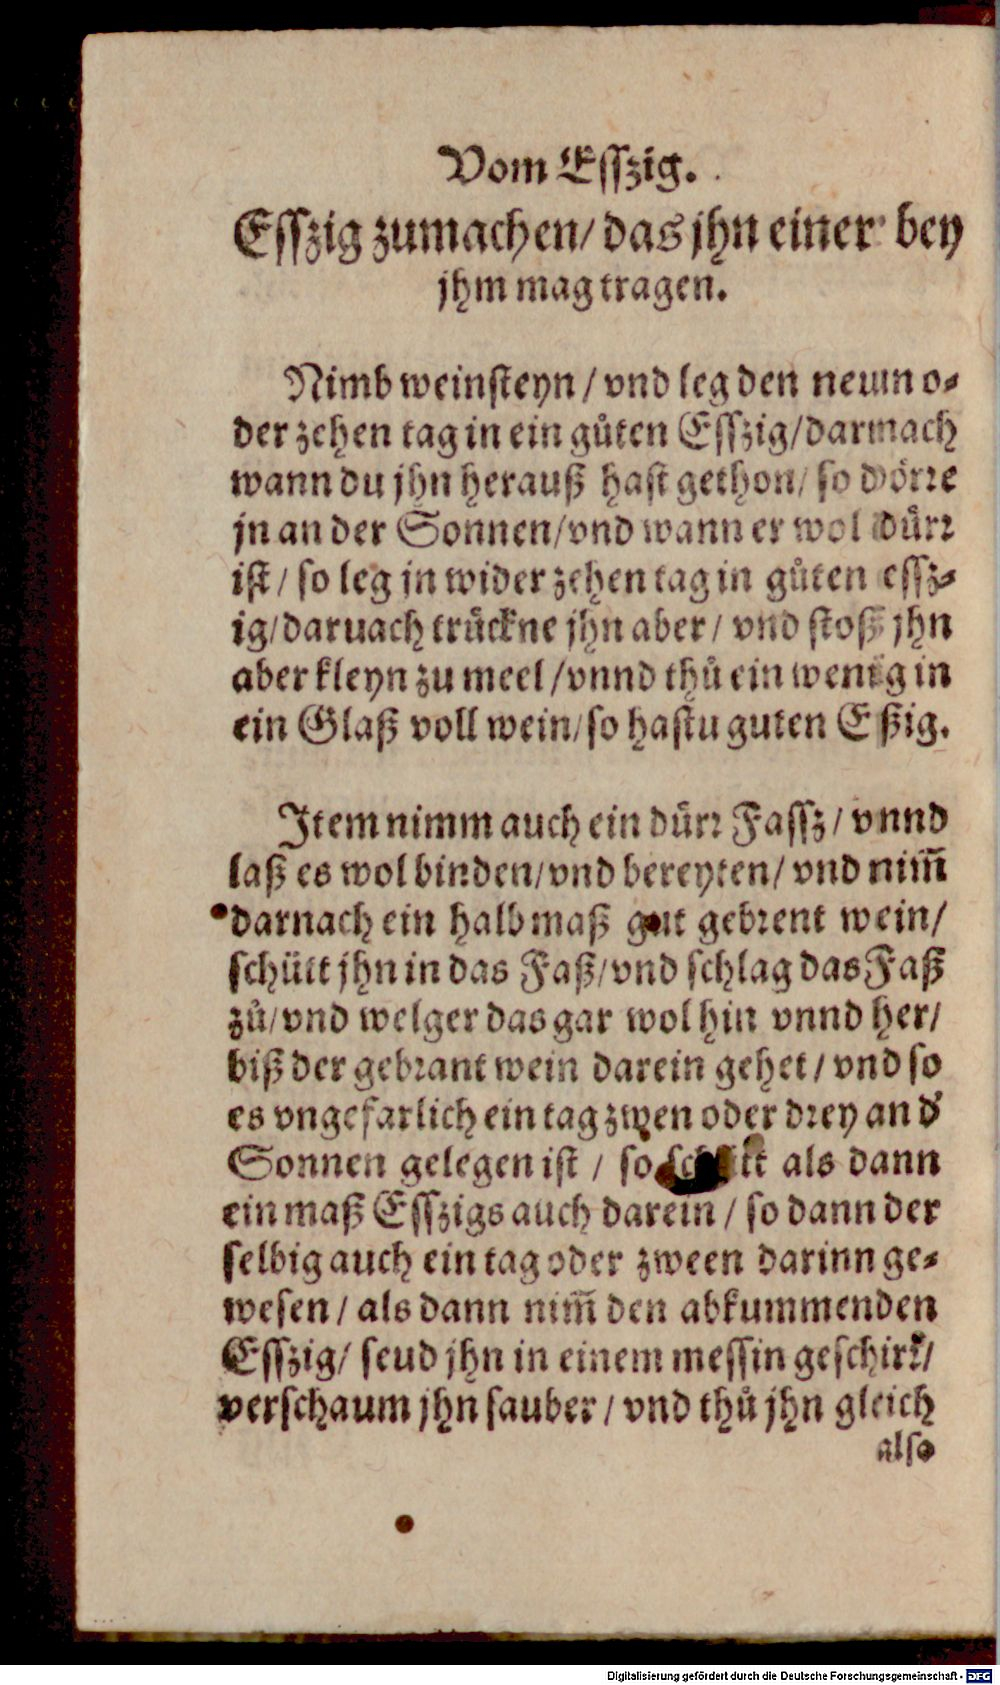 Vom Esszig.
Esszig zumachen/ das jhn einer bey
jhm mag tragen.
Nimb weinsteyn / vnd leg den neuwn o⸗
der zehen tag in ein gůten Esszig/darnach
wann du jhn herauß hast gethon/ so dörre
jn an der Sonnen/vnd wann er wol dürr
ist / so leg jn wider zehen tag in gůten essz⸗
ig/daruach trückne jhn aber / vnd stoß jhn
aber kleyn zu meel /vnnd thů ein wenig in
ein Glaß voll wein/so hastu guten Eßig.
Item nimm auch ein dürr Fassz / vnnd
laß es wol binden/vnd bereyten/ vnd nim̃
darnach ein halb maß gut gebrent wein/
schütt jhn in das Faß/vnd schlag das Faß
zů/vnd welger das gar wol hin vnnd her/
biß der gebrant wein darein gehet / vnd so
es vngefarlich ein tag zwen oder drey an d'
Sonnen gelegen ist / so als dann
ein maß Esszigs auch darein / so dann der
selbig auch ein tag oder zween darinn ge⸗
wesen / als dann nim̃ den abkummenden
Esszig/ seud jhn in einem messin geschirr/
verschaum jhn sauber / vnd thů jhn gleich
also
Digitalisierung gefördert durch die Deutsche Forschungsgemeinschaft - DFG